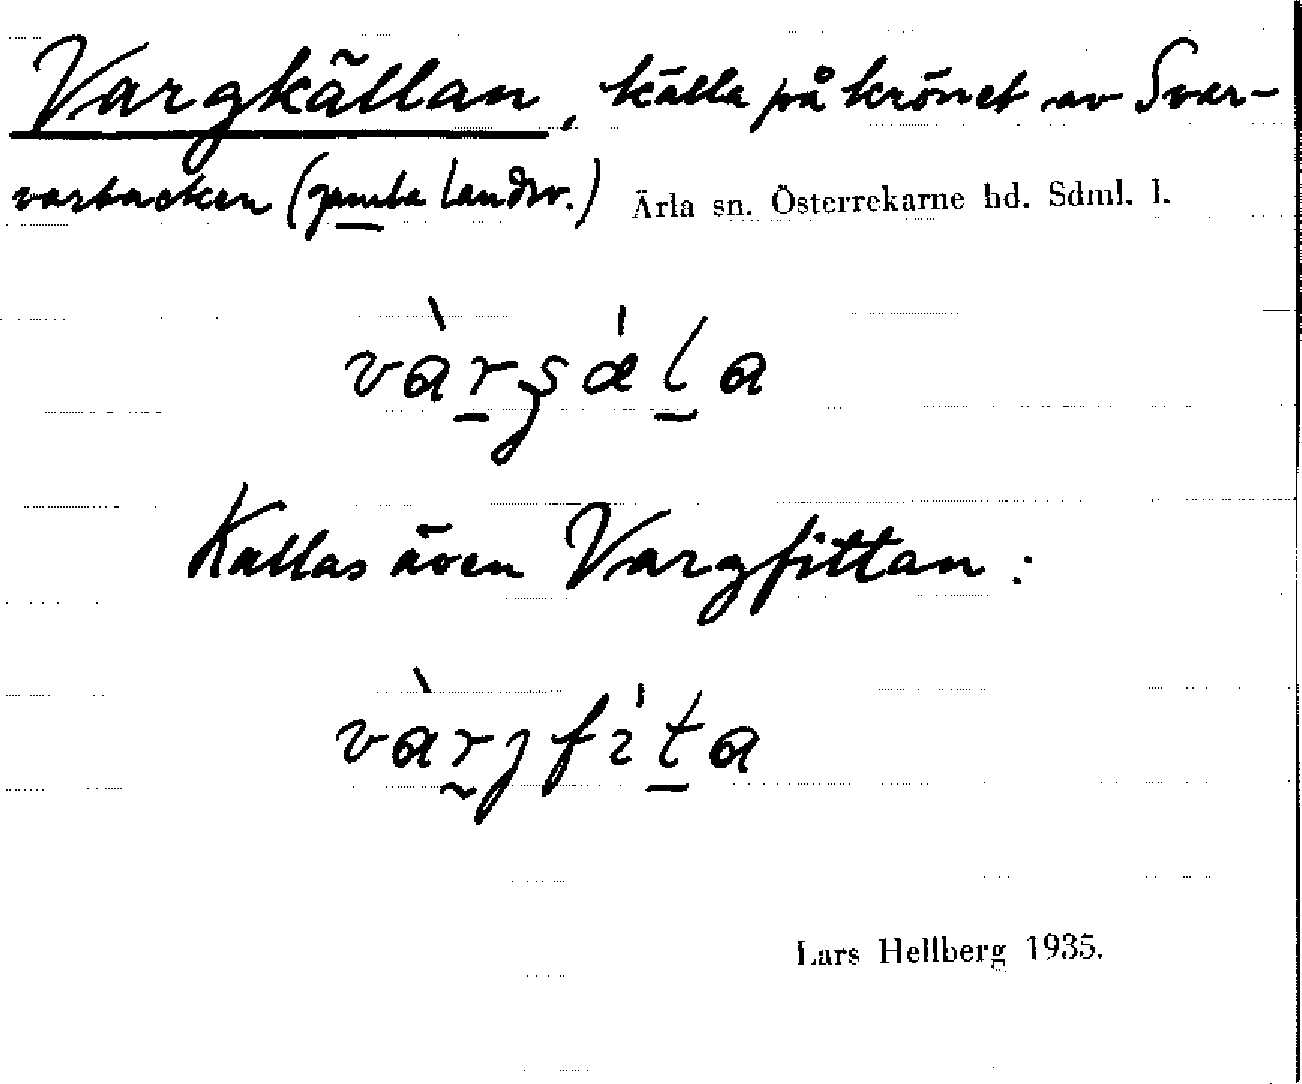 Vargkällan, källa på krönet av Svar-
varbacken (gamla landsv.) Ärla sn. Österrekarne hd. Sdml. l.
Kallas även Vargfittan:
Lars Hellberg 1935.